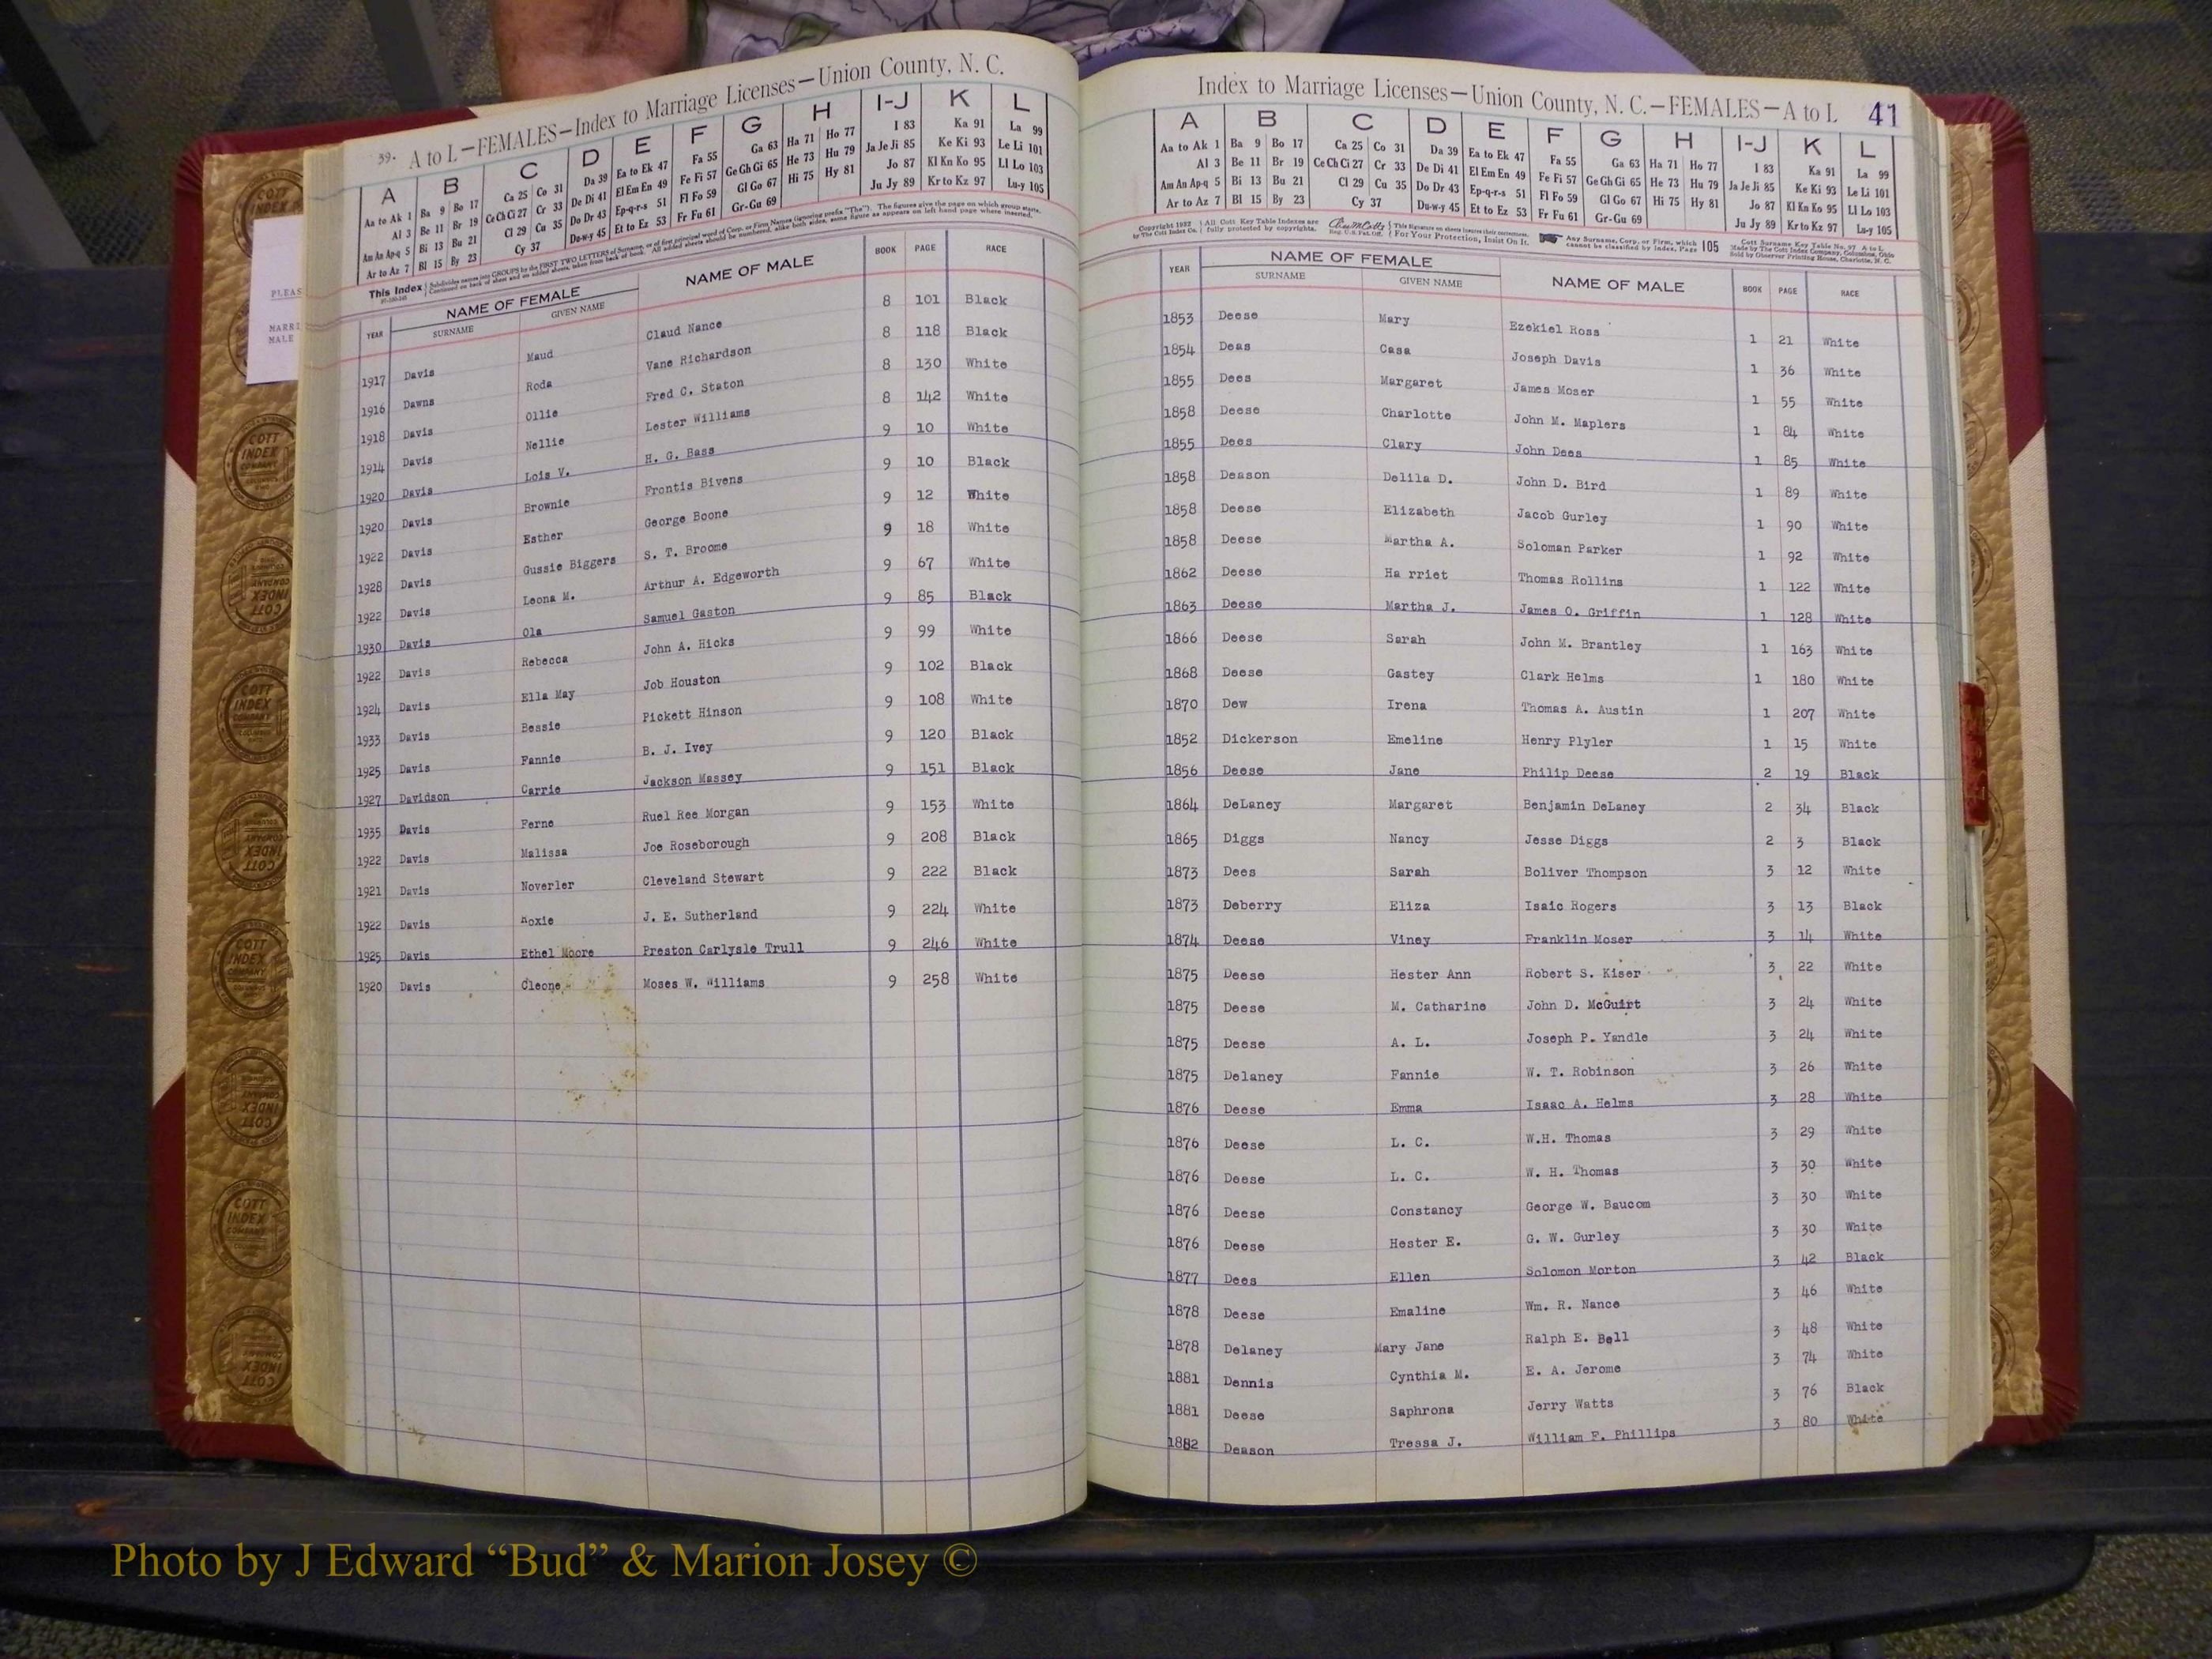 39. A to L—FEMALES—Index to Marriage Licenses—Union County, N. C.
A B C D E F G H I-J K L
Aa to Ak 1 Ba 9 Bo 17 Ca 25 Co 31 Da 39 Ea to Ek 47 Fa 55 Ga 63 Ha 71 Ho 77 I 83 Ka 91 La 99
Al 3 Be 11 Br 19 Ce Ch Ci 27 Cr 33 De Di 41 El Em En 49 Fe Fi 57 Ge Gh Gi 65 He 73 Hu 79 Ja Je Ji 85 Ke Ki 93 Le Li 101
Am An Ap-q 5 Bi 13 Bu 21 Cl 29 Cu 35 Do Dr 43 Ep-q-r-s 51 Fl Fo 59 Gl Go 67 Hi 75 Hy 81 Jo 87 Kl Kn Ko 95 Ll Lo 103
Ar to Az 7 Bl 15 By 23 Cy 37 Du-w-y 45 Et to Ez 53 Fr Fu 61 Gr-Gu 69 Ju Jy 89 Kr to Kz 97 Lu-y 105
This Index
YEAR NAME OF FEMALE SURNAME GIVEN NAME NAME OF MALE BOOK PAGE RACE
1917 Davis Maud Claud Nance 8 101 Black
1916 Dawns Roda Vane Richardson 8 118 Black
1918 Davis Ollie Fred C. Staton 8 130 White
1914 Davis Nellie Lester Williams 8 142 White
1920 Davis Lois V. H. G. Bass 9 10 White
1920 Davis Brownie Frontis Bivens 9 10 Black
1922 Davis Esther George Boone 9 12 White
1928 Davis Gussie Biggers S. T. Broome 9 18 White
1922 Davis Leona M. Arthur A. Edgeworth 9 67 White
1930 Davis Ola Samuel Gaston 9 85 Black
1922 Davis Rebecca John A. Hicks 9 99 White
1924 Davis Ella May Job Houston 9 102 Black
1933 Davis Bessie Pickett Hinson 9 108 White
1925 Davis Fannie B. J. Ivey 9 120 Black
1927 Davidson Carrie Jackson Massey 9 151 Black
1935 Davis Ferne Ruel Ree Morgan 9 153 White
1922 Davis Malissa Joe Roseborough 9 208 Black
1921 Davis Noverler Cleveland Stewart 9 222 Black
1922 Davis J. E. Sutherland 9 224 White
1925 Davis Ethel Moore Preston Carlysle Trull 9 246 White
1920 Davis Cleone Moses W. Williams 9 258 White
Index to Marriage Licenses—Union County, N. C.—FEMALES—A to L 41
A B C D E F G H I-J K L
Aa to Ak 1 Ba 9 Bo 17 Ca 25 Co 31 Da 39 Ea to Ek 47 Fa 55 Ga 63 Ha 71 Ho 77 I 83 Ka 91 La 99
Al 3 Be 11 Br 19 Ce Ch Ci 27 Cr 33 De Di 41 El Em En 49 Fe Fi 57 Ge Gh Gi 65 He 73 Hu 79 Ja Je Ji 85 Ke Ki 93 Le Li 101
Am An Ap-q 5 Bi 13 Bu 21 Cl 29 Cu 35 Do Dr 43 Ep-q-r-s 51 Fl Fo 59 Gl Go 67 Hi 75 Hy 81 Jo 87 Kl Kn Ko 95 Ll Lo 103
Ar to Az 7 Bl 15 By 23 Cy 37 Du-w-y 45 Et to Ez 53 Fr Fu 61 Gr-Gu 69 Ju Jy 89 Kr to Kz 97 Lu-y 105
YEAR NAME OF FEMALE SURNAME GIVEN NAME NAME OF MALE BOOK PAGE RACE
1853 Deese Mary Ezekiel Ross 1 21 White
1854 Deas Casa Joseph Davis 1 36 White
1855 Dees Margaret James Moser 1 55 White
1858 Deese Charlotte John M. Maplers 1 84 White
1855 Dees Clary John Dees 1 85 White
1858 Deason Delila D. John D. Bird 1 89 White
1858 Deese Elizabeth Jacob Gurley 1 90 White
1858 Deese Martha A. Soloman Parker 1 92 White
1862 Deese Ha rriet Thomas Rollins 1 122 White
1863 Deese Martha J. James O. Griffin 1 128 White
1866 Deese Sarah John M. Brantley 1 163 White
1868 Deese Gastey Clark Helms 1 180 White
1870 Dew Irena Thomas A. Austin 1 207 White
1852 Dickerson Emeline Henry Plyler 1 15 White
1856 Deese Jane Philip Deese 2 19 Black
1864 DeLaney Margaret Benjamin DeLaney 2 34 Black
1865 Diggs Nancy Jesse Diggs 2 3 Black
1873 Dees Sarah Boliver Thompson 3 12 White
1873 Deberry Eliza Isaic Rogers 3 13 Black
1874 Deese Viney Franklin Moser 3 14 White
1875 Deese Hester Ann Robert S. Kiser 3 22 White
1875 Deese M. Catharine John D. McGuirt 3 24 White
1875 Deese A. L. Joseph P. Yandle 3 24 White
1875 Delaney Fannie W. T. Robinson 3 26 White
1876 Deese Emma Isaac A. Helms 3 28 White
1876 Deese L. C. W.H. Thomas 3 29 White
1876 Deese L. C. W. H. Thomas 3 30 White
1876 Deese Constancy George W. Baucom 3 30 White
1876 Deese Hester E. G. W. Gurley 3 30 White
1877 Dees Ellen Solomon Morton 3 42 Black
1878 Deese Emaline Wm. R. Nance 3 46 White
1878 Delaney Mary Jane Ralph E. Bell 3 48 White
1881 Dennis Cynthia M. E. A. Jerome 3 74 White
1881 Deese Saphrona Jerry Watts 3 76 Black
1882 Deason Tressa J. William F. Phillips 3 80 White
Photo by J Edward “Bud” & Marion Josey ©